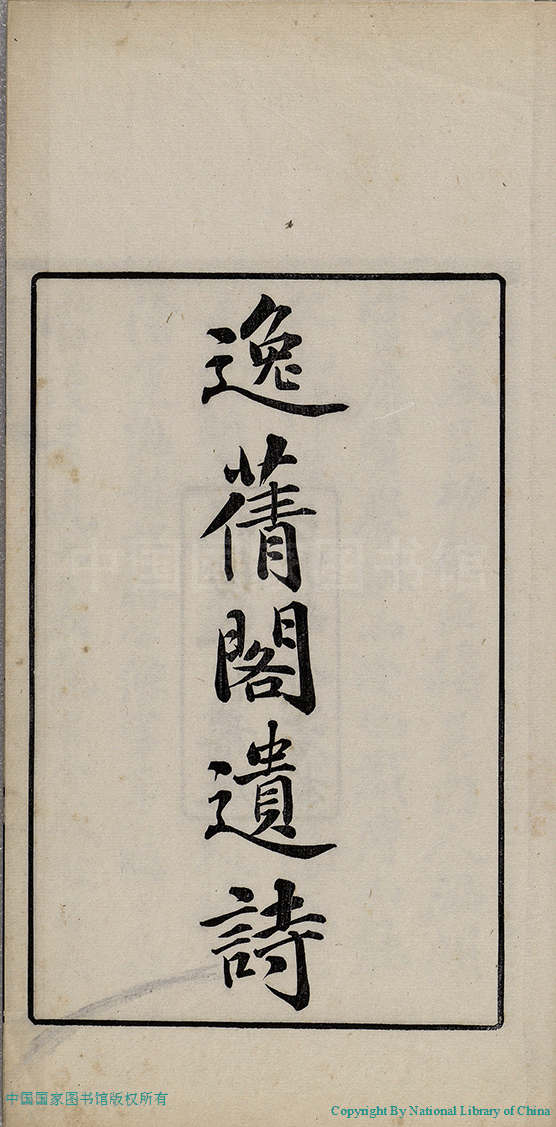 逸蒨閣遺詩
中国国家图书馆
中国国家图书馆版权所有
Copyright By National Library of China